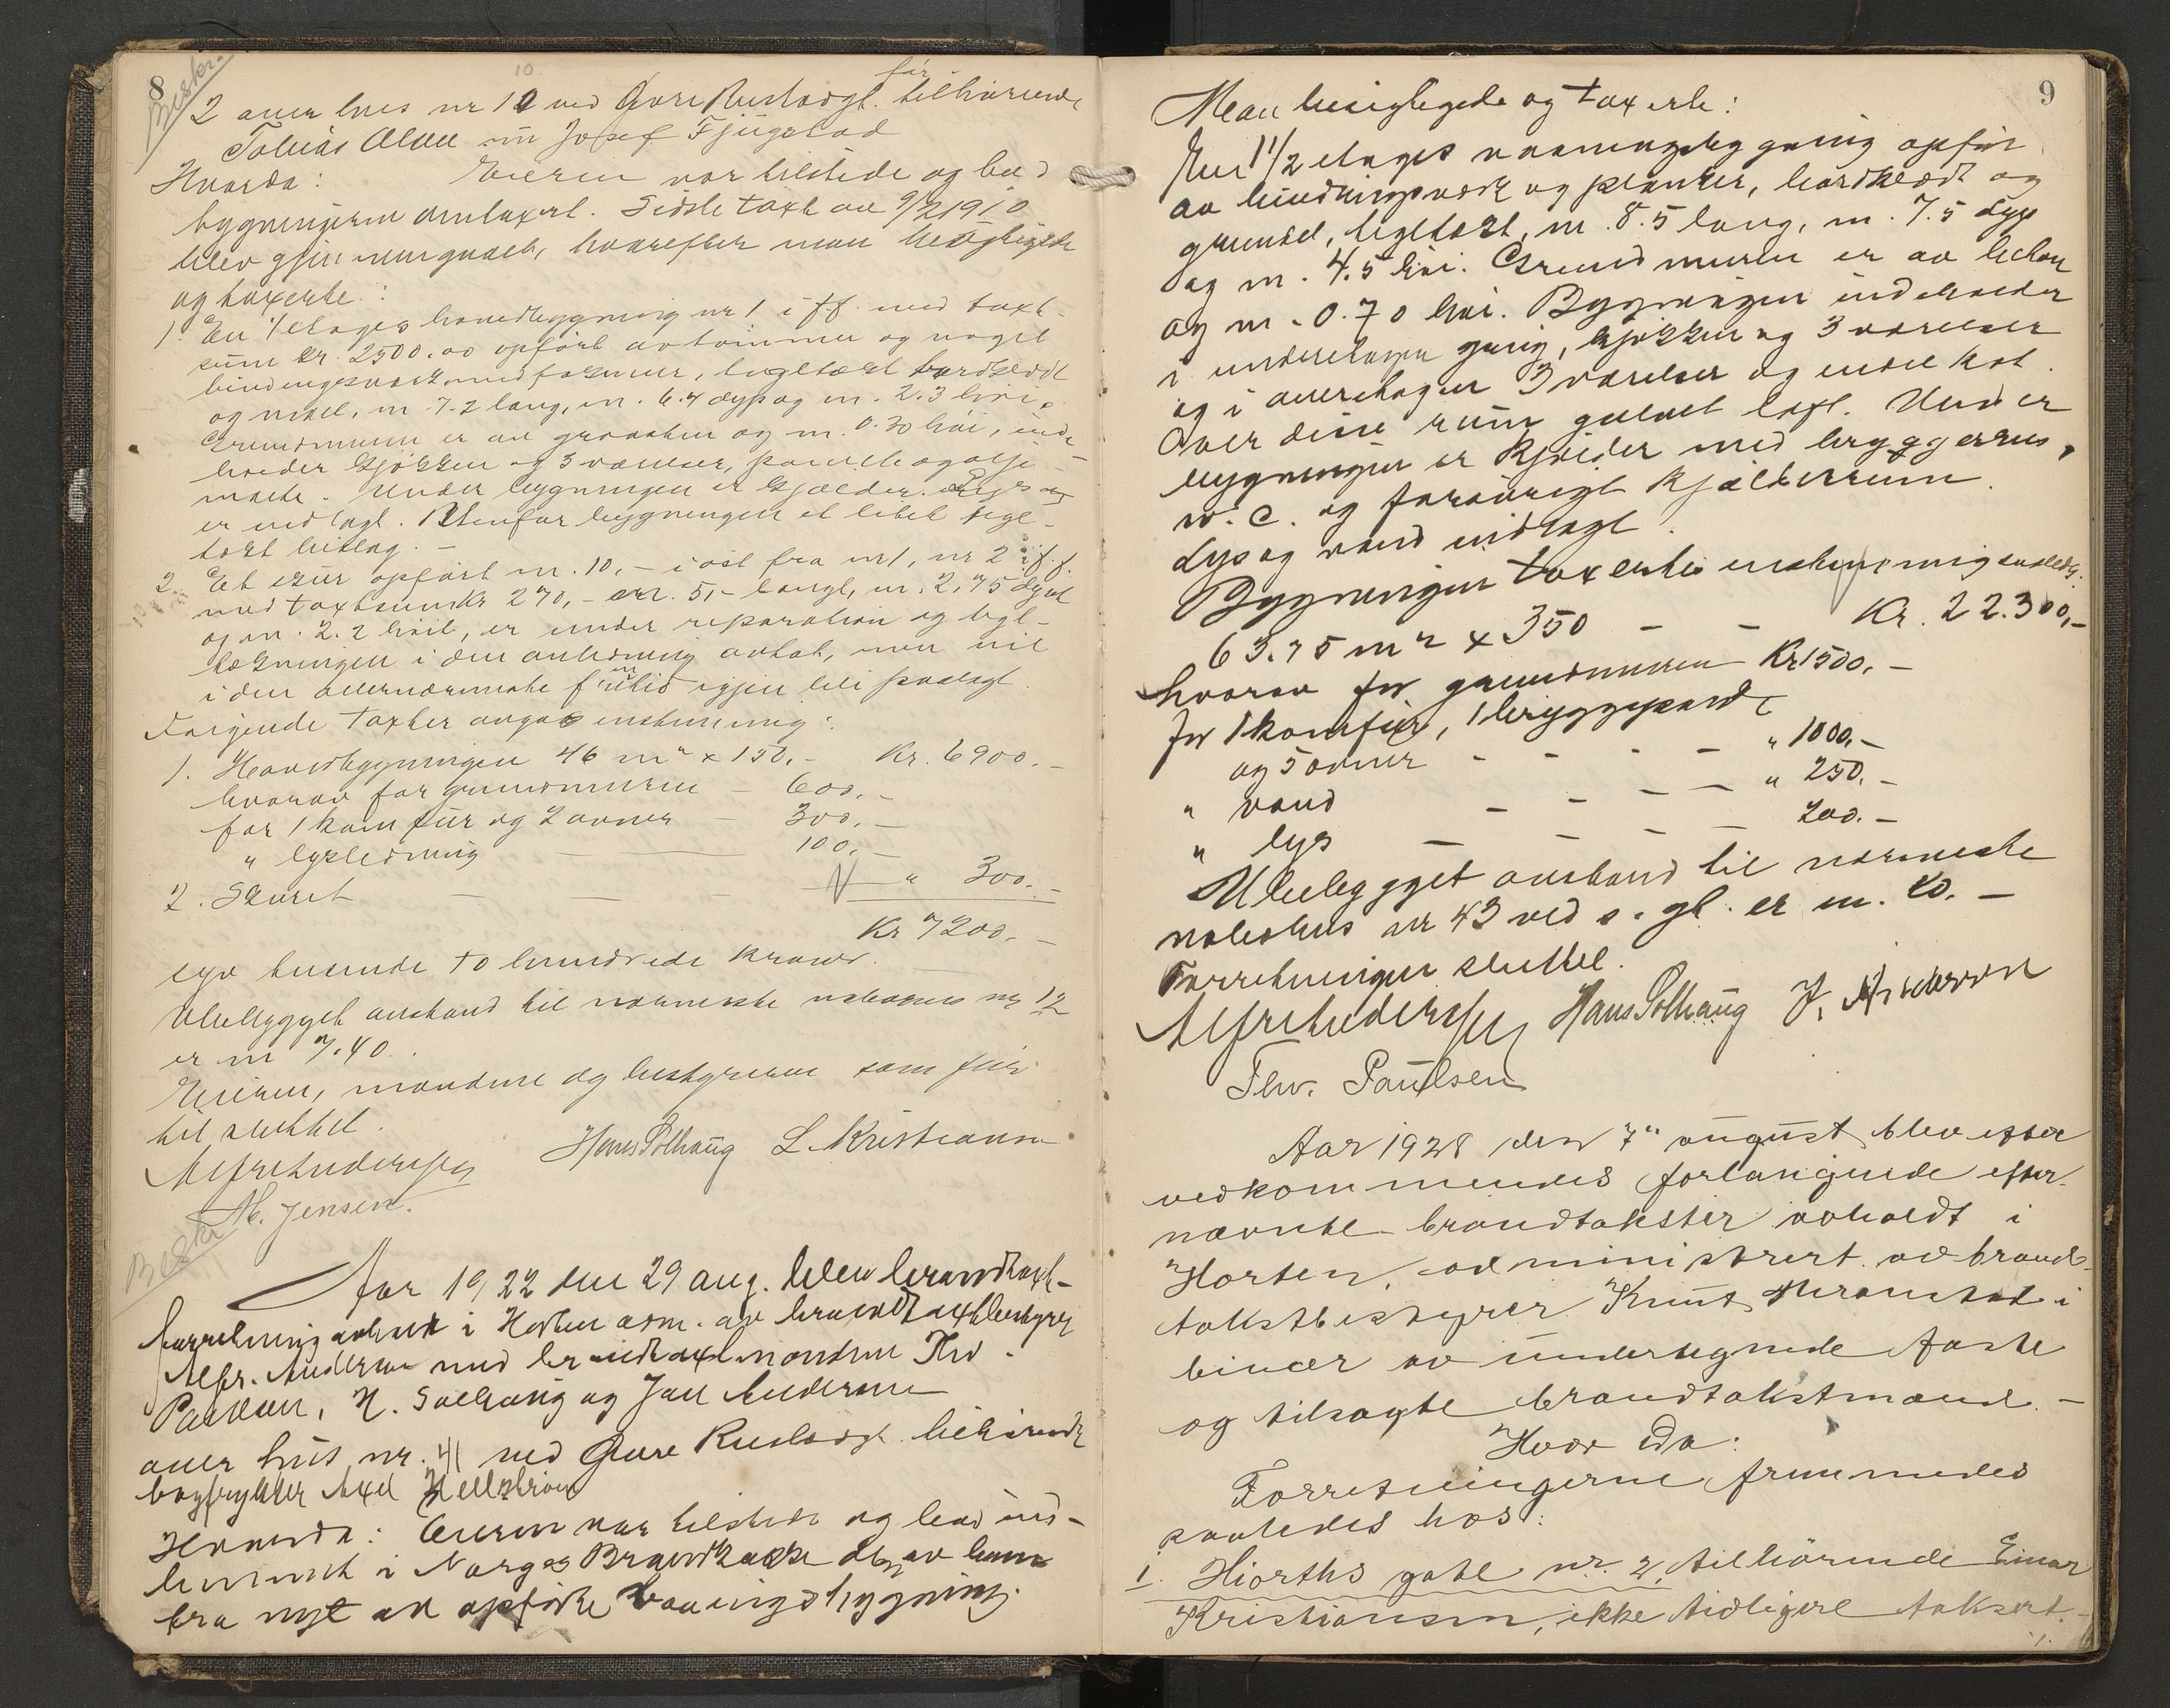 8
Beskr.
10
før
2 over hus nr 10 ved Øvre Rustadgt. tilhørende
Tobias Olsen nu Josef Fjugstad
Hvorda: Eieren var tilstede og bad
bygningerne omtaxert. Sidste taxt av 9/2 1910
blev gjennemgaaet, hvorefter man besigtigede
og taxerte:
1. En 1 etages hovedbygning nr 1 i f.f. med taxt-
sum kr. 2500.00 opført av tømmer og noget
bindingsverk med forskur, tegltækt bordklædt
og malt, m. 7.2 lang, m. 6.4 dyp og m. 2.3 høi.
Grundmuren er av graasten og m. 0.30 høi, inde-
holder kjøkken og 3 værelser, panelte og olje-
malte. Under bygningen er kjælder. Lys
er indlagt. Utenfor bygningen et litet tegl-
tækt bislag. -
2. Et skur opført m. 10,- i øst fra nr 1, nr 2 i f.f.
med taxtsum kr 270,- er m. 5,- langt, m. 2,75 dypt
og m. 2.2 høit, er under reparation og tegl-
tækningen i den anledning avtat, men vil
i den allernærmeste fremtid igjen bli paalagt.
Følgende taxter avgaves enstemmig:
1. Hovedbygningen 46 m² x 150,- Kr. 6900.-
hvorav for grundmuren - 600.-
for 1 komfur og 2 ovner - 300.-
" lysledning - 100.-
2. Skuret - - - " 300.-
Kr 7200.-
syv tusende to hundrede kroner.
Ubebygget avstand til nærmeste nabohus nr 12
er m 7.40.
Eieren, mændene og bestyreren som før
til sluttet.
Alfr Andersen Hans Solhaug L. Kristiansen
M. Jensen.
Beskr
Aar 1922 den 29 aug. blev brandtaxt-
forretning avholdt i Horten adm. av brandtaxtbestyrer
Alfr. Andersen med brandtaxtmændene Thv.
Paulsen, H. Solhaug og Joh Andersen
over hus nr. 41 ved Øvre Rustadgt. tilhørende
bogtrykker Axel Hellstrøm
Hvorda: Eieren var tilstede og bad ind-
lemmet i Norges Brandkasse den av ham
fra nyt av opførte vaaningsbygning.
9
Man besigtigede og taxerte:
En 1 1/2 etages vaaningsbygning opført
av bindingsverk og planker, bordklædt og
grundet, tegltækt, m. 8.5 lang, m. 7.5 dyp
og m. 4.5 høi. Grundmuren er av beton
og m. 0.70 høi. Bygningen indeholder
i underetagen gang, kjøkken og 3 værelser
og i overetagen 3 værelser og endel kot.
Over disse rum gulvet loft. Under
bygningen er kjælder med bryggerhus,
w.c. og forøvrigt kjælderrum.
Lys og vand indlagt.
Bygningen taxertes enstemmig saaledes:
63.75 m² x 350 - - Kr. 22.300,-
hvorav for grundmuren Kr 1500.-
for 1 komfur, 1 bryggepande
og 5 ovner - - - - " 1000.-
" vand - - - - " 250.-
" lys - - - - 200.-
Ubebygget avstand til nærmeste
nabohus nr 43 ved s. gt. er m. 10.-
Forretningen sluttet.
Alfr Andersen Hans Solhaug J. Andersen
Thv. Paulsen
Aar 1928 den 7" august blev efter
vedkommendes forlangende efter-
nævnte brandtakster avholdt i
Horten, administrert av brand-
takstbestyrer Knut i
binær av undertegnede faste
og tilsagte brandtakstmænd.-
Hvor da:
Forretningerne fremmedes
saaledes hos:
1. Hiorths gate nr. 2, tilhørende Einar
Kristiansen, ikke tidligere taksert.